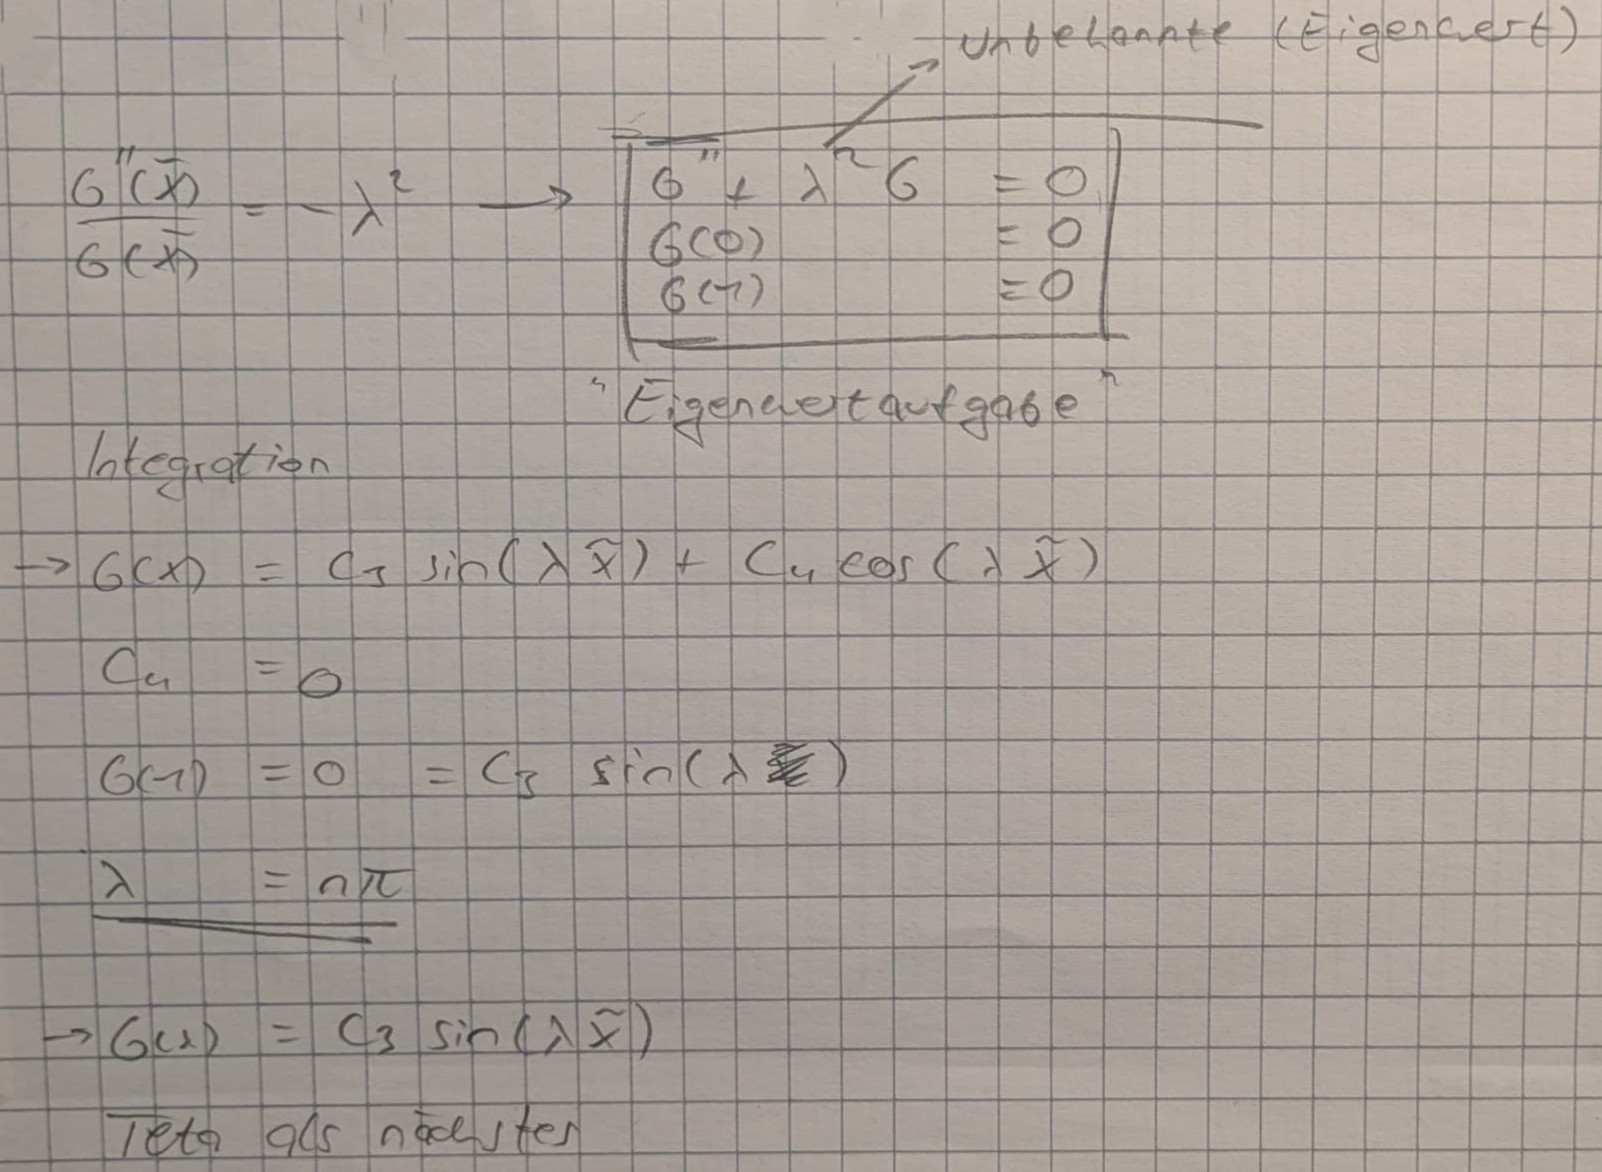 Unbekannte (Eigenwert)
G''(x̄)/G(x̄) = -λ² → G'' + λ²G = 0
G(0) = 0
G(1) = 0
"Eigenwertaufgabe"
Integration
→ G(x) = C₃ sin(λ x̃) + C₄ cos(λ x̃)
C₄ = 0
G(1) = 0 = C₃ sin(λ)
λ = nπ
→ G(x) = C₃ sin(λ x̃)
Teta als nächstes